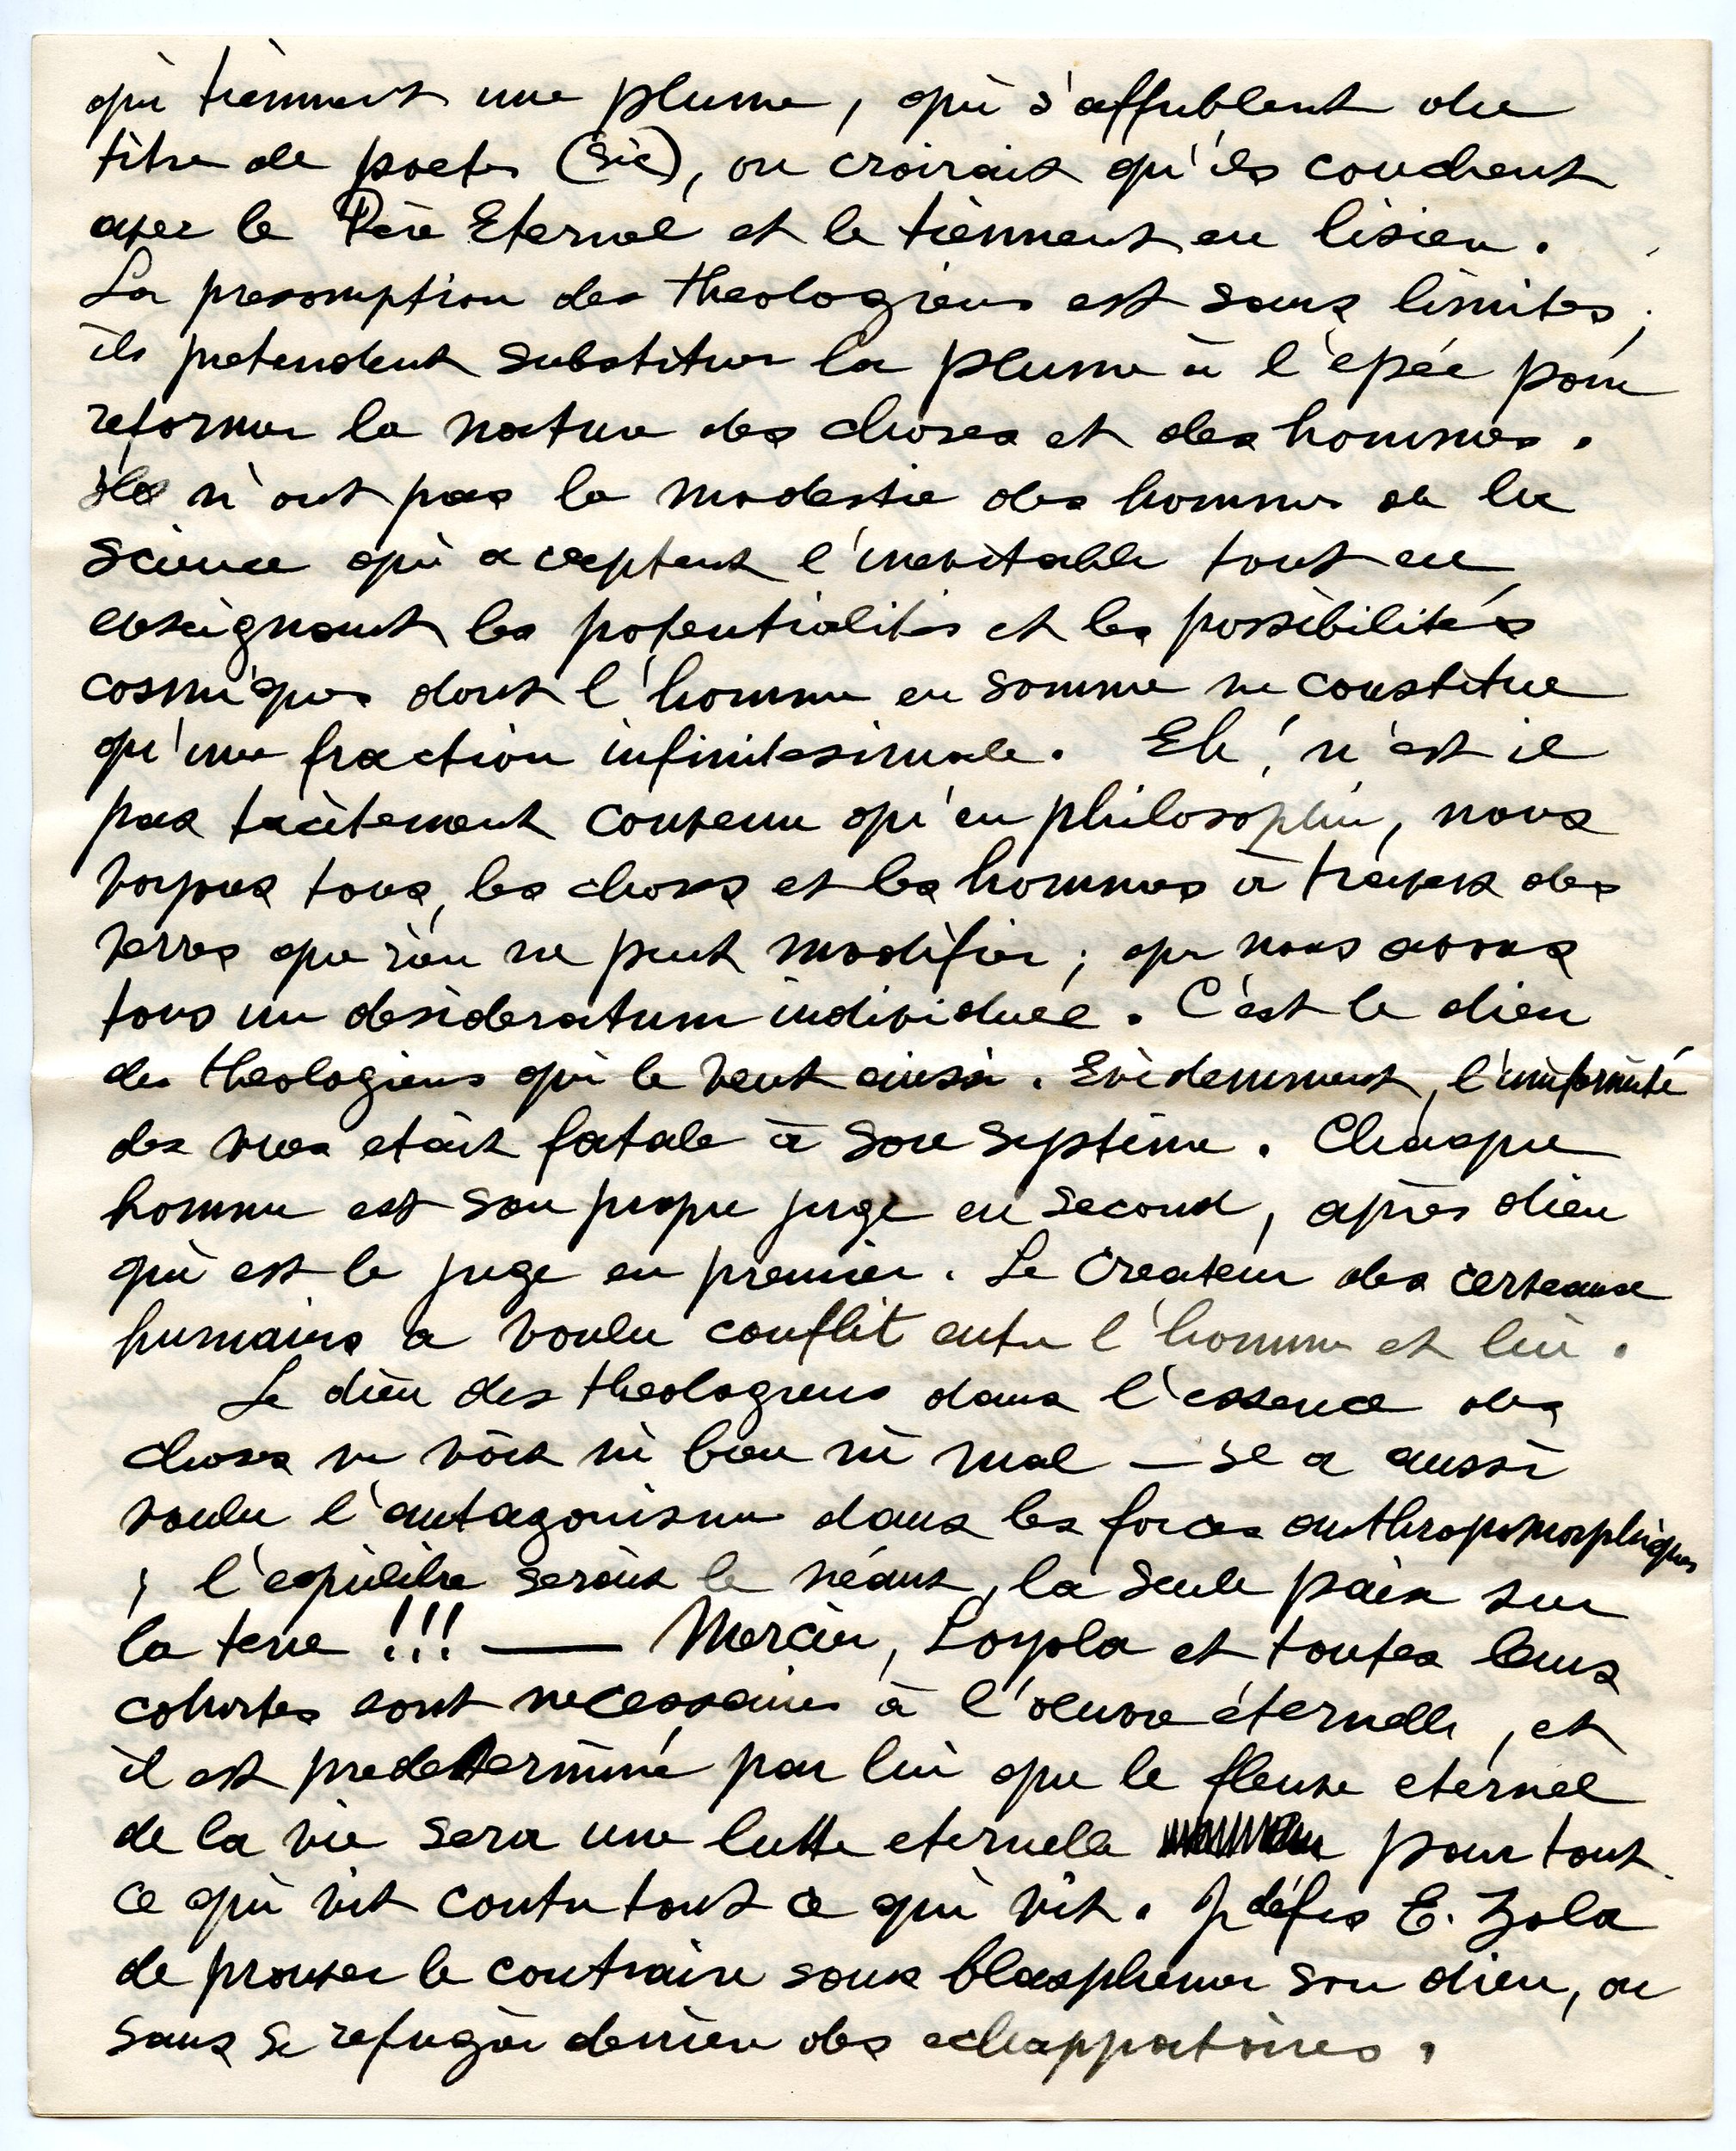 qui tiennent une plume, qui s'affublent du
titre de poetes (sic), on croirait qu'ils couchent
avec le Père Eternel et le tiennent en lisien.
La presomption des theologiens est sans limites;
ils pretendent substituer la plume à l'épée pour
reformer la nature des choses et des hommes.
ils n'ont pas la modestie des hommes de la
Science qui acceptent l'inevitable tout en
enseignant les potentialités et les possibilités
cosmiques dont l'homme en somme ne constitue
qu'une fraction infinitesimale. Eh! n'est il
pas tacitement convenu qu'en philosophie, nous
voyons tous, les choses et les hommes à travers des
verres que rien ne peut modifier; que nous avons
tous un desideratum individuel. C'est le dieu
des theologiens qui le veut ainsi. Evidemment, l'uniformité
des vues etait fatale à son système. Chaque
homme est son propre juge en second, après dieu
qui est le juge en premier. Le Createur des cerveaux
humains a voulu conflit entre l'homme et lui.
Le dieu des theologiens dans l'essence des
choses ne voit ni bien ni mal — Il a aussi
voulu l'antagonisme dans les forces anthropomorphiques
; l'equilibre serait le néant, la seule paix sur
la terre !!! — Mercier, Loyola et toutes leurs
cohortes sont necessaires à l'oeuvre éternelle, et
il est predeterminé par lui que le fleuve eternel
de la vie sera une lutte eternelle pour tout
ce qui vit contre tout ce qui vit. Je défis E. Zola
de prouver le contraire sans blasphemer son dieu, ou
sans se refugier derriere des echappatoires.